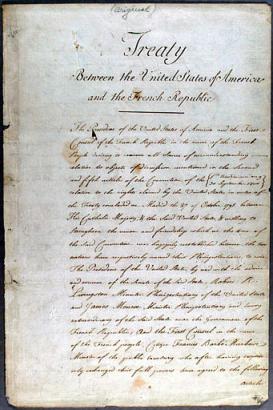 (Original)
Treaty
Between the United States of America
and the French Republic
The President of the United States of America and the First
Consul of the French Republic in the name of the French
People desiring to remove all Source of misunderstanding
relative to objects of discussion mentioned in the Second
and fifth articles of the Convention of the
30 September 1800
relative to the rights claimed by the United States in virtue of
the Treaty concluded at Madrid the 27 of October 1795, between
His Catholic Majesty, & the Said United States, & willing to
Strengthen the union and friendship which at the time of
the Said Convention was happily reestablished between the two
nations have respectively named their Plenipotentiaries to wit
The President of the United States, by and with the advice
and consent of the Senate of the Said States; Robert R.
Livingston Minister Plenipotentiary of the United States
and James Monroe Minister Plenipotentiary and Envoy
extraordinary of the Said States near the Government of the
French Republic; And the First Consul in the name
of the French people, Citizen Francis Barbé Marbois
Minister of the public treasury who after having respect-
ively exchanged their full powers have agreed to the following
Articles